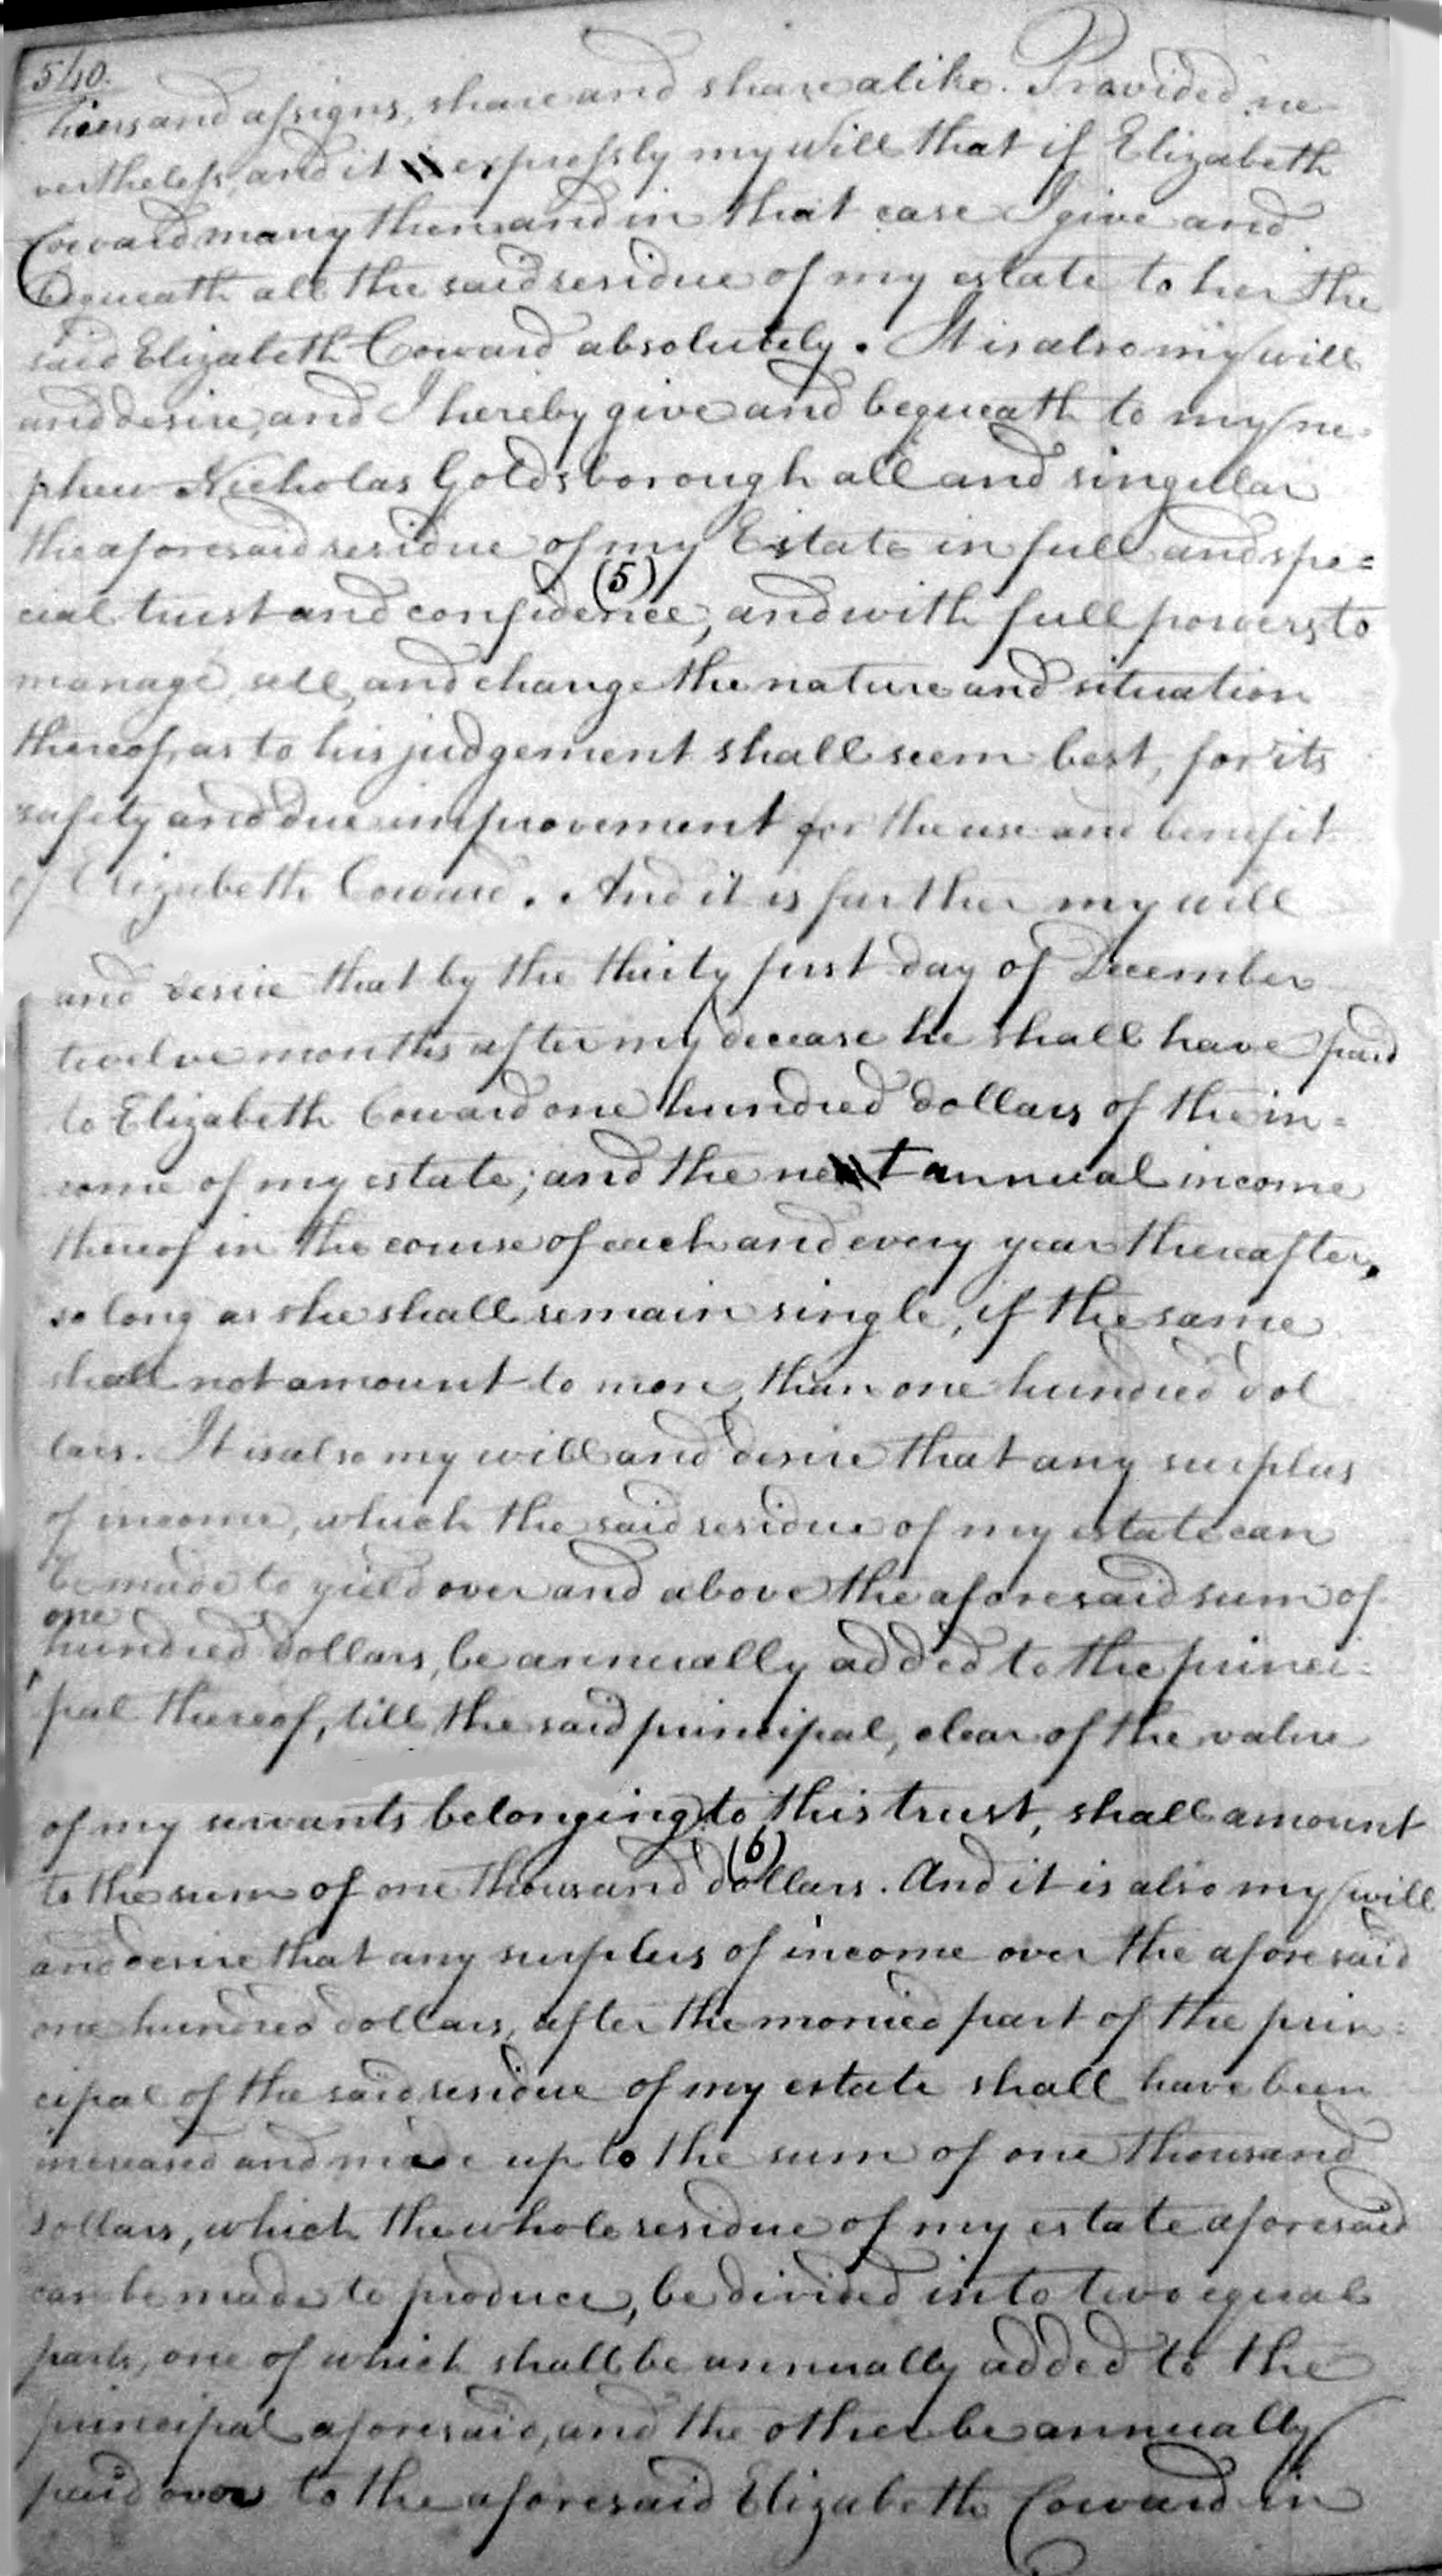 540.
heirs and assigns, share and share alike. Provided ne
vertheless, and it is expressly my will that if Elizabeth
Coward marry then and in that case I give and
bequeath all the said residue of my estate to her the
said Elizabeth Coward absolutely. It is also my will
and desire, and I hereby give and bequeath to my ne
phew Nicholas Goldsborough all and singular
the aforesaid residue of my Estate in full and spe=
(5)
cial trust and confidence, and with full powers to
manage, sell, and change the nature and situation
thereof, as to his judgement shall seem best, for its
safety and due improvement for the use and benefit
of Elizabeth Coward. And it is further my will
and desire that by the thirty first day of December
twelve months after my decease he shall have paid
to Elizabeth Coward one hundred dollars of the in=
come of my estate; and the net annual income
thereof in the course of each and every year thereafter,
so long as she shall remain single, if the same
shall not amount to more than one hundred dol
lars. It is also my will and desire that any surplus
of income, which the said residue of my estate can
be made to yield over and above the aforesaid sum of
one
hundred dollars, be annually added to the princi=
pal thereof, till the said principal, clear of the value
of my servants belonging to this trust, shall amount
(6)
to the sum of one thousand dollars. And it is also my will
and desire that any surplus of income over the aforesaid
one hundred dollars, after the monied part of the prin=
cipal of the said residue of my estate shall have been
increased and made up to the sum of one thousand
dollars, which the whole residue of my estate aforesaid
can be made to produce, be divided into two equal
parts, one of which shall be annually added to the
principal aforesaid, and the other be annually
paid over to the aforesaid Elizabeth Coward in